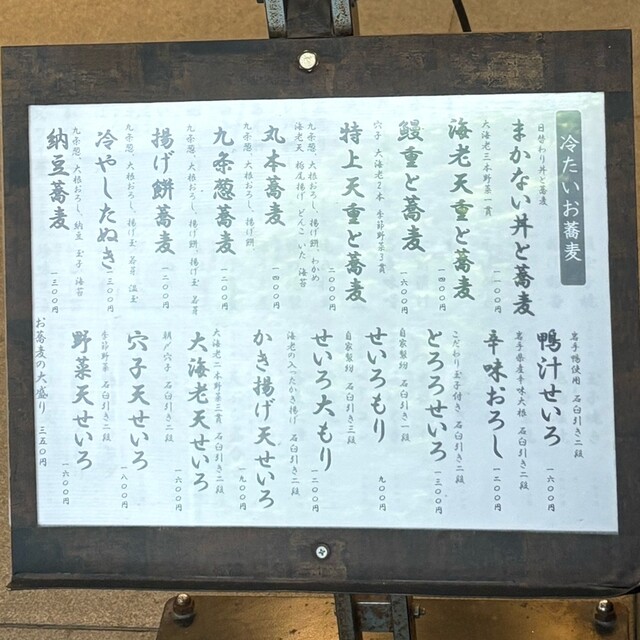 冷たいお蕎麦
日替わり丼と蕎麦
まかない丼と蕎麦
一一〇〇円
大海老二本野菜一貫
海老天重と蕎麦
一四〇〇円
鰻重と蕎麦
一六〇〇円
穴子 大海老2本 季節野菜3貫
特上天重と蕎麦
二〇〇〇円
九条葱、大根おろし、揚げ餅 わかめ
海老天 栃尾揚げ どんこ いた 海苔
丸本蕎麦
一四〇〇円
九条葱、大根おろし、揚げ餅
九条葱蕎麦
一二〇〇円
九条葱、大根おろし、揚げ餅、揚げ玉、若芽
揚げ餅蕎麦
一二〇〇円
九条葱、大根おろし、揚げ玉、若芽 温玉
冷やしたぬき
一三〇〇円
九条葱、大根おろし、納豆 玉子 海苔
納豆蕎麦
一三〇〇円
岩手鴨使用 石臼引き二段
鴨汁せいろ
一六〇〇円
岩手県産辛味大根 石臼引き二段
辛味おろし
一二〇〇円
こだわり玉子付き 石臼引き二段
とろろせいろ
一三〇〇円
自家製粉 石臼引き一段
せいろもり
九〇〇円
自家製粉 石臼引き二段
せいろ大もり
一二〇〇円
海老の入ったかき揚げ 石臼引き二段
かき揚げ天せいろ
一九〇〇円
大海老二本野菜三貫 石臼引き二段
大海老天せいろ
一六〇〇円
鯛/穴子 石臼引き二段
穴子天せいろ
一八〇〇円
季節野菜 石臼引き二段
野菜天せいろ
一六〇〇円
お蕎麦の大盛り 三五〇円